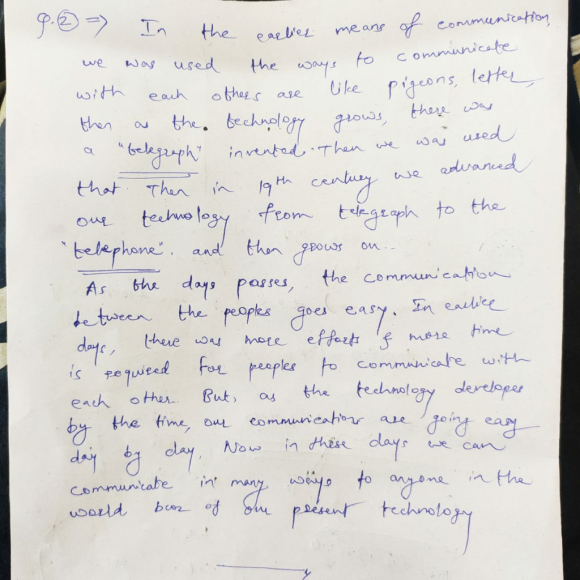 Q.② => In the earlier means of communication,
we was used the ways to communicate
with each others are like pigeons, letter,
then as the technology grows, there was
a "telegraph" invented. Then we was used
that. Then in 19th century we advanced
our technology from telegraph to the
"telephone". and then grows on..
As the days passes, the communication
between the peoples goes easy. In earlier
days, there was more efforts & more time
is required for peoples to communicate with
each other. But, as the technology developes
by the time, our communications are going easy
day by day. Now in these days we can
communicate in many ways to anyone in the
world bcoz of our present technology